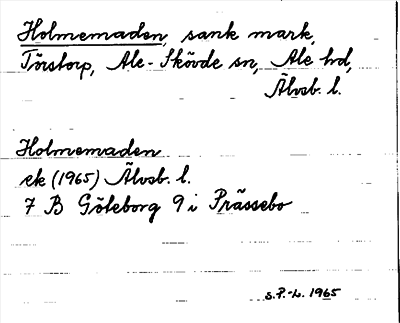 Holmemaden, sank mark,
Törstorp, Ale-Skövde sn, Ale hd,
Älvsb. l.
Holmemaden
ek (1965) Älvsb. l.
7 B Göteborg 9 i Prässebo
S.P.-L. 1965